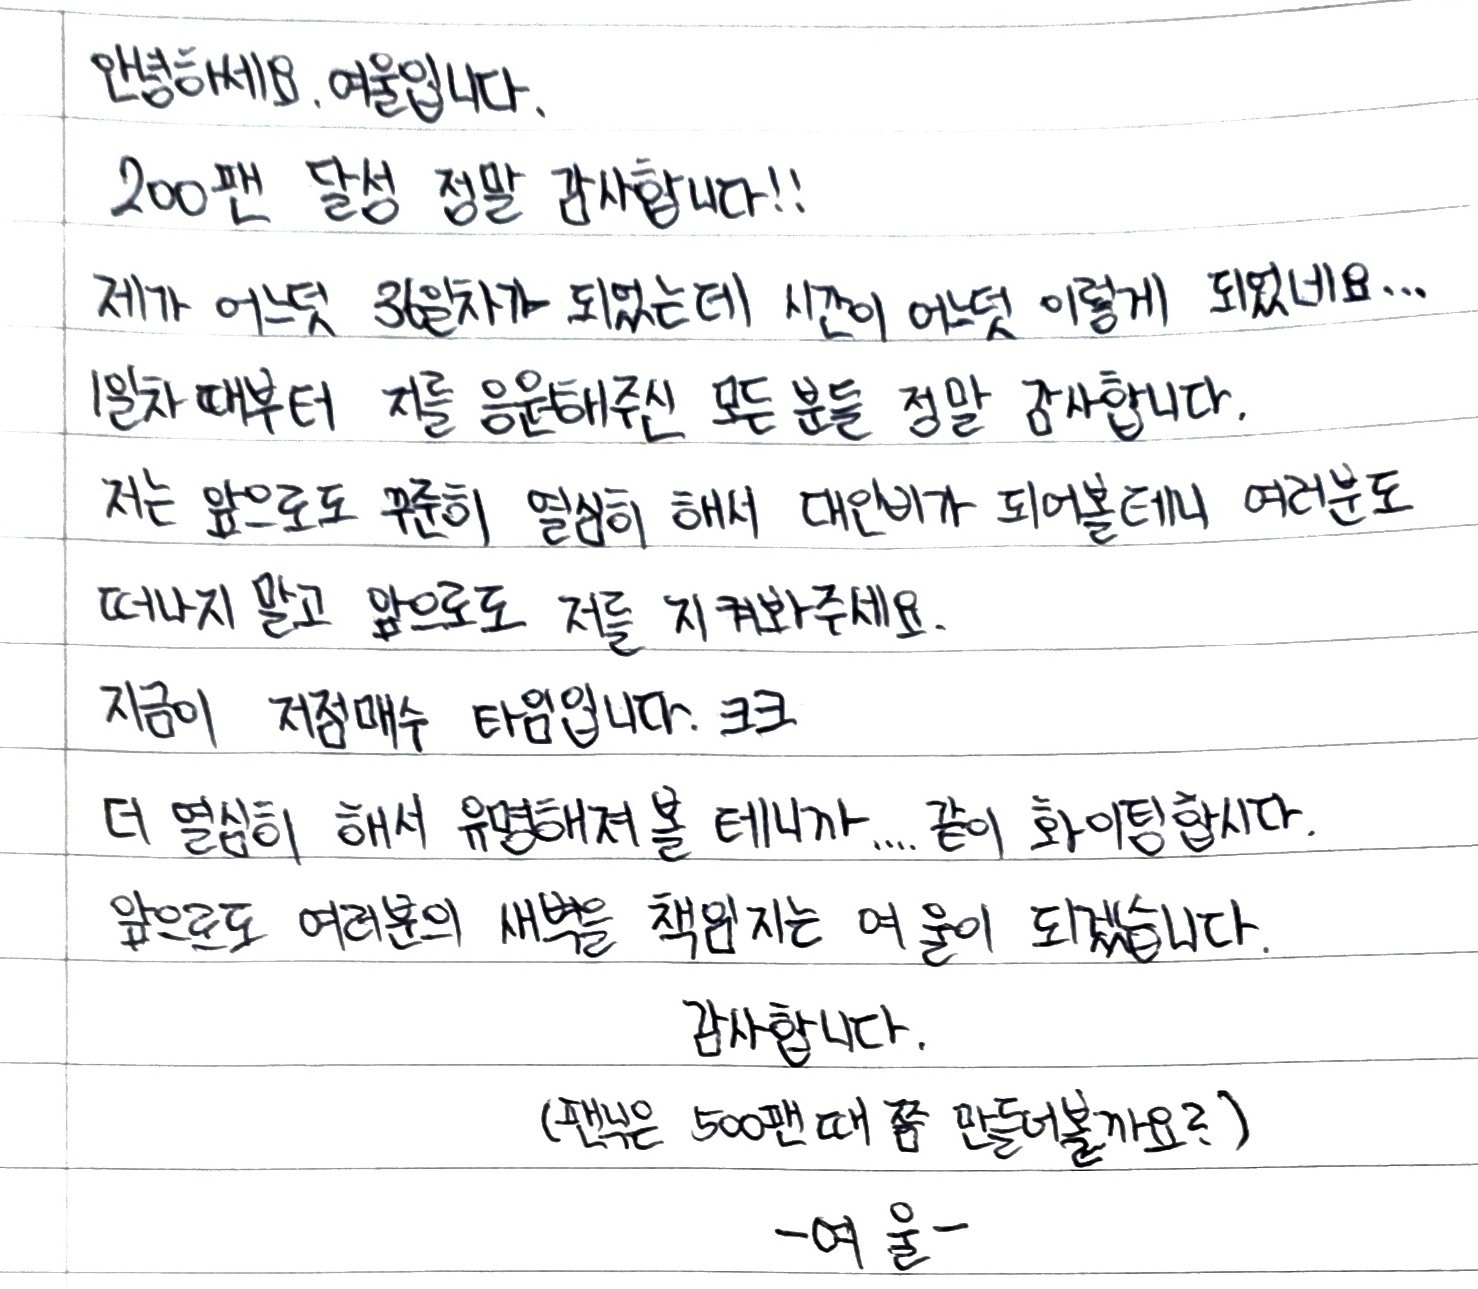 안녕하세요. 여울입니다.
200팬 달성 정말 감사합니다!!
제가 어느덧 36일차가 되었는데 시간이 어느덧 이렇게 되었네요...
1일차 때부터 저를 응원해주신 모든 분들 정말 감사합니다.
저는 앞으로도 꾸준히 열심히 해서 대안비가 되어볼테니 여러분도
떠나지 말고 앞으로도 저를 지켜봐주세요.
지금이 저점매수 타임입니다. ㅋㅋ
더 열심히 해서 유명해져 볼 테니까.... 같이 화이팅합시다.
앞으로도 여러분의 새벽을 책임지는 여울이 되겠습니다.
감사합니다.
(팬뷰은 500팬 때 쯤 만들어볼까요?)
-여울-